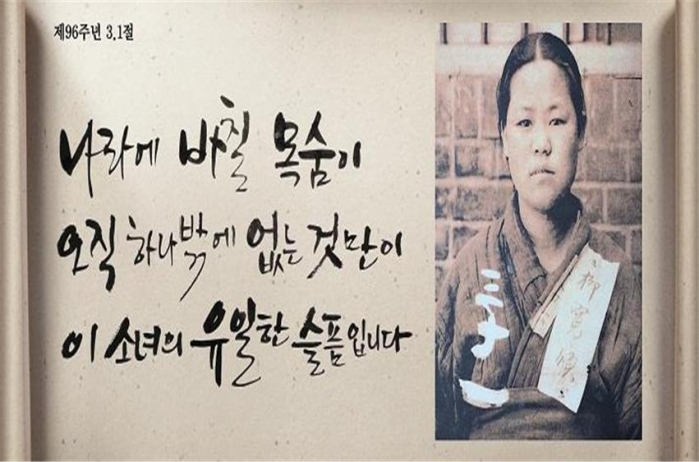 제96주년 3.1절
나라에 바칠 목숨이
오직 하나밖에 없는 것만이
이 소녀의 유일한 슬픔입니다
柳寬順